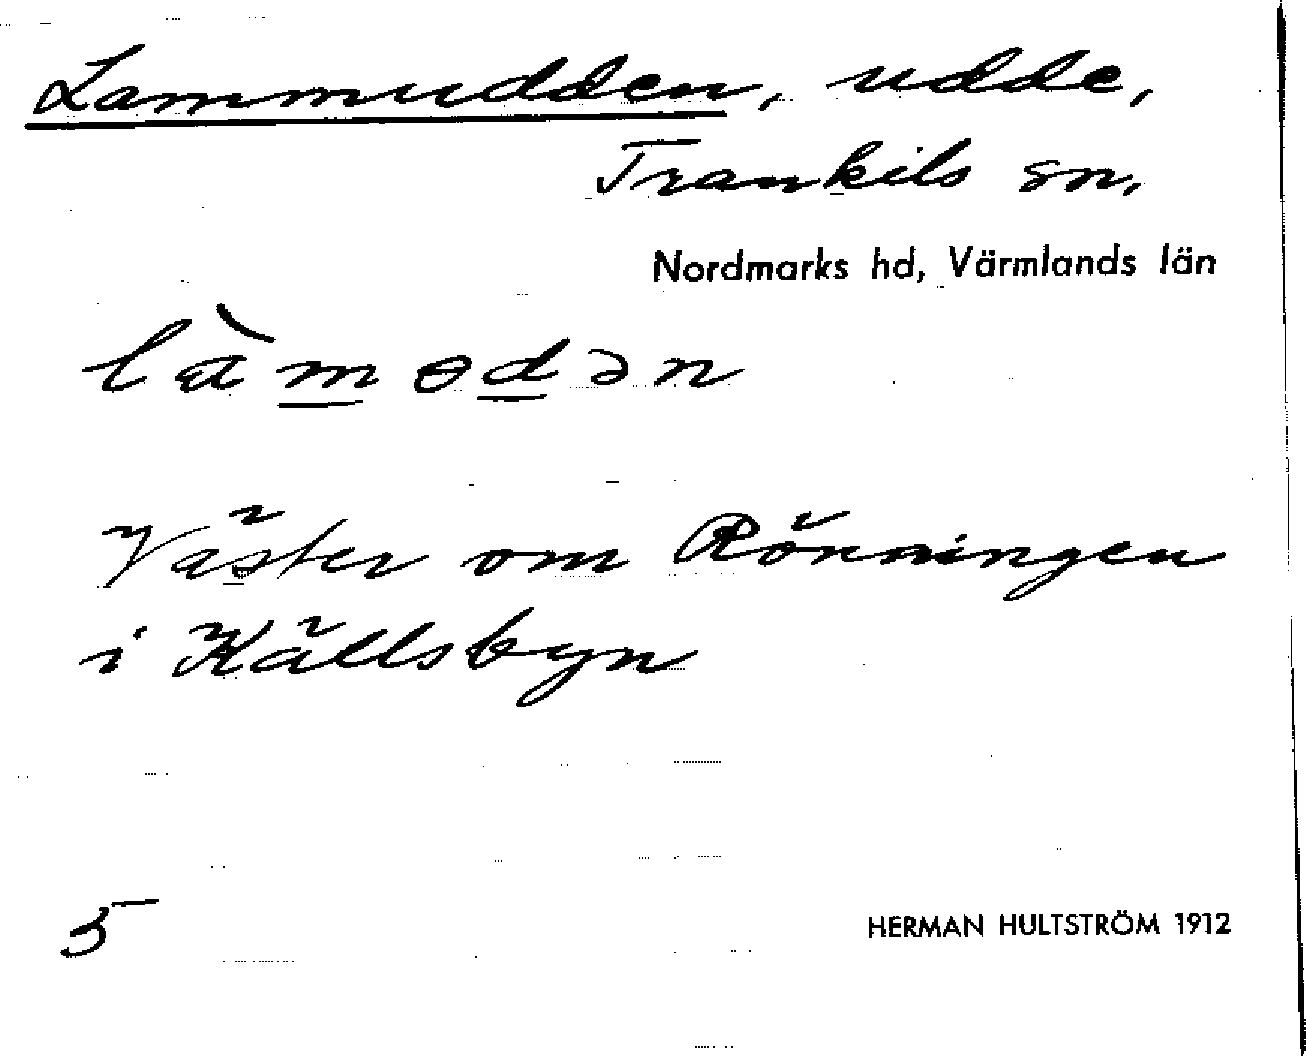 Lammudden, udde,
Trankils sn,
Nordmarks hd, Värmlands län
là m̲ ɵ d̲ ə n
Väster om Rönningen
i Källsbyn
5
HERMAN HULTSTRÖM 1912